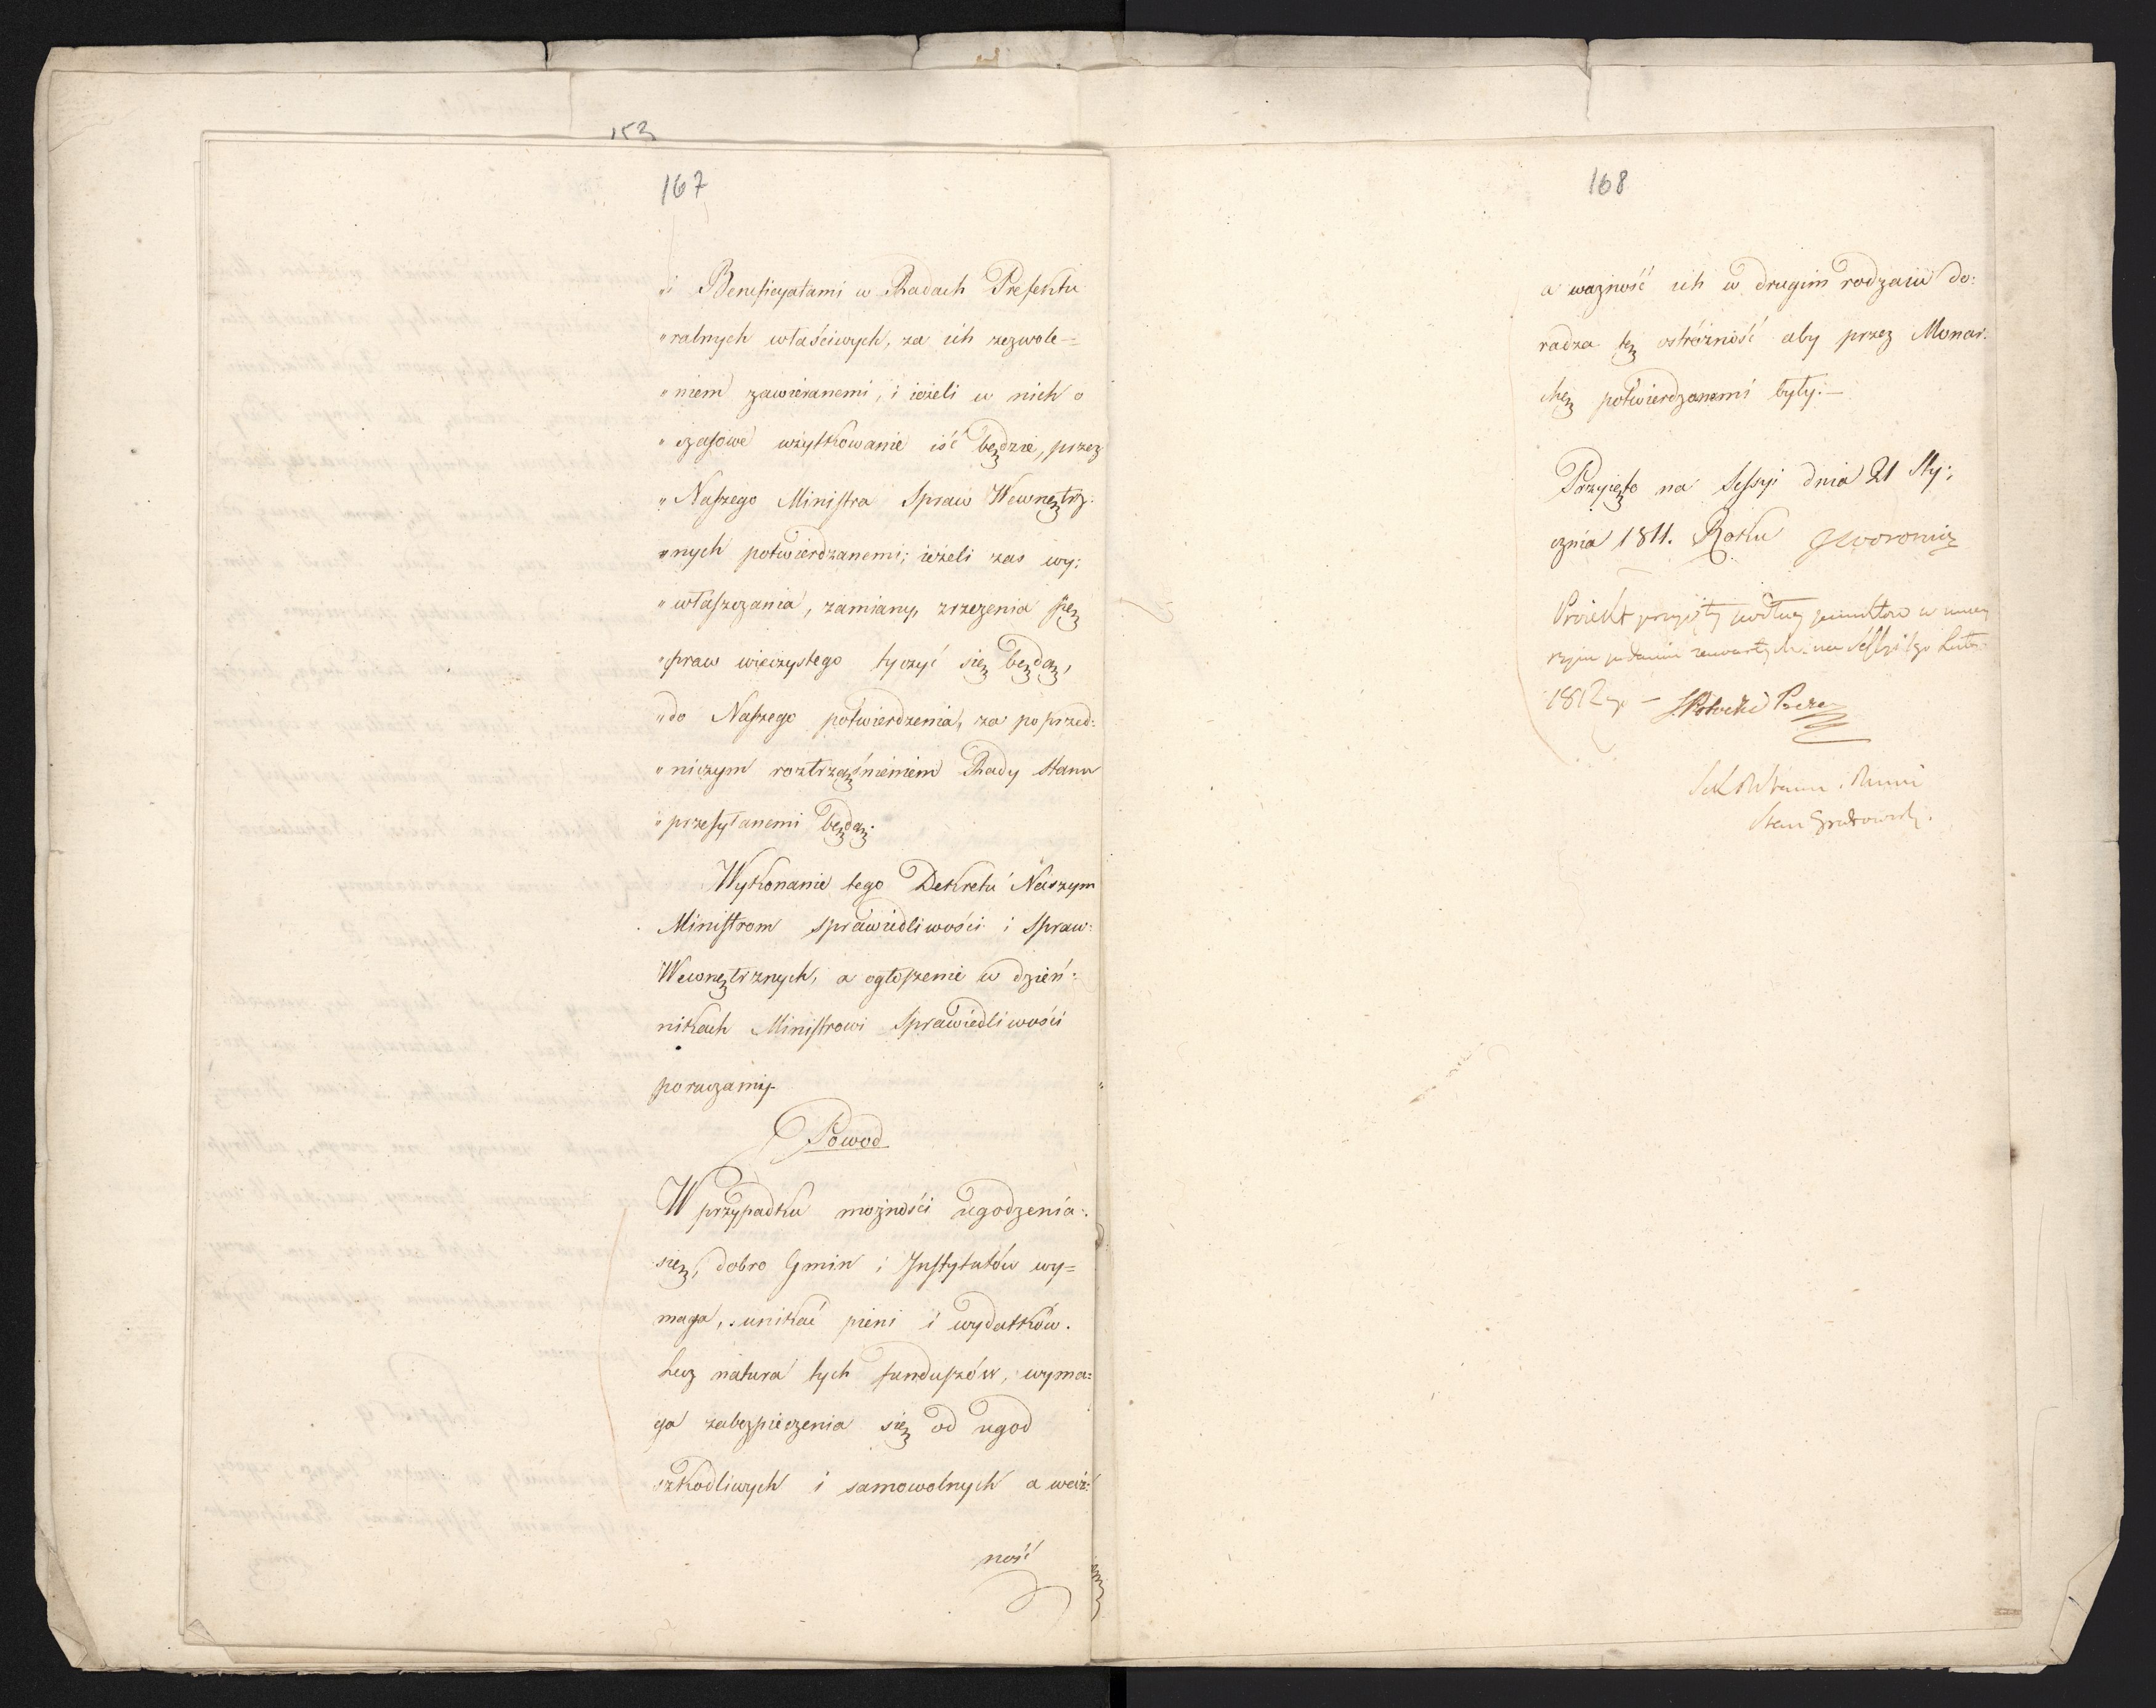 153
167
„i Beneficyatami w Radach Prefektu
„ralnych właściwych, za ich zezwole=
„niem zawieranemi, i ieżeli w nich o
„czasowe użytkowanie iść będzie, przez
„Naszego Ministra Spraw Wewnętrz:
„nych potwierdzanemi; ieżeli zas wy:
„właszczania, zamiany, zrzeczenia się
„praw wieczystego tyczyć się będą,
„do Naszego potwierdzenia, za poprzed:
„niczym roztrząśnieniem Rady Stanu
„przesyłanemi będą.
Wykonanie tego Dekretu Naszym
Ministrom Sprawiedliwości i Spraw
Wewnętrznych, a ogłoszenie w dzień:
nikach Ministrowi Sprawiedliwości
poruczamy.
Powod
W przypadku możności ugodzenia
się, dobro Gmin i Instytutów wy=
maga, unikać pieni i wydatków.
Lecz natura tych funduszów, wyma=
ga zabezpieczenia się od ugod
szkodliwych i samowolnych a waż:
ność
168
a ważność ich w drugim rodzaiu do:
radza tę ostróżność aby przez Monar:
chę potwierdzanemi były.—
Przyięto na Sessyi dnia 21 Sty:
cznia 1811. Roku Woronicz
Proiekt przyięty podług punktow w
podaniu zawartych na Sessyi Lute
1812 go — Potocki Preze
Stan Grabowski.